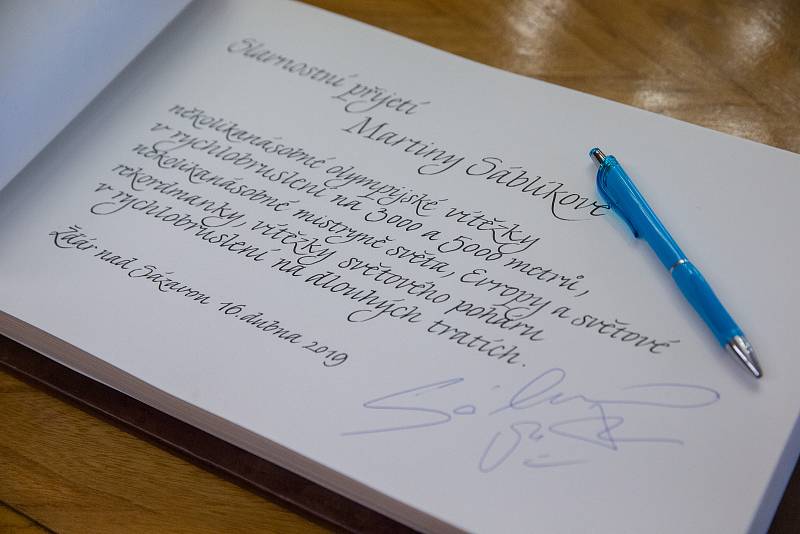 Slavnostní přijetí
Martiny Sáblíkové
několikanásobné olympijské vítězky
v rychlobruslení na 3000 a 5000 metrů,
několikanásobné mistryně světa, Evropy a světové
rekordmanky, vítězky světového poháru
v rychlobruslení na dlouhých tratích.
Žďár nad Sázavou 16. dubna 2019